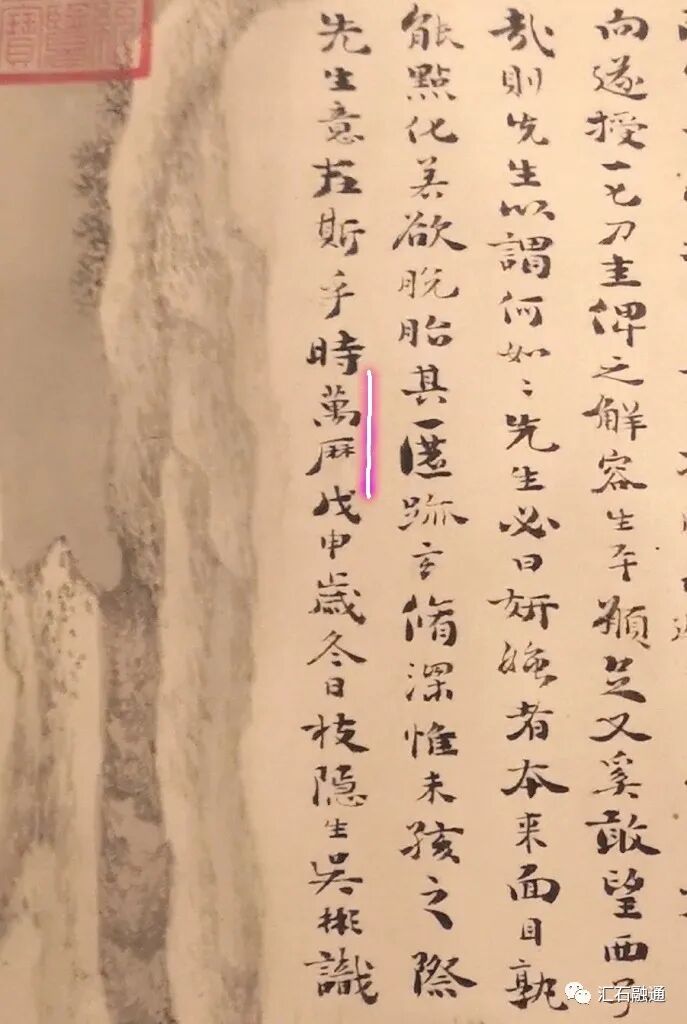 向遂授一匕刀圭俾之解容生平願足又奚敢望西子
哉則先生以謂何如〻先生必曰妍媸者本来面目孰
能點化若欲脫胎其匿跡玄脩深惟未孩之際
先生意在斯乎時萬厤戊申歲冬日枝隱生吳彬識
汇石融通